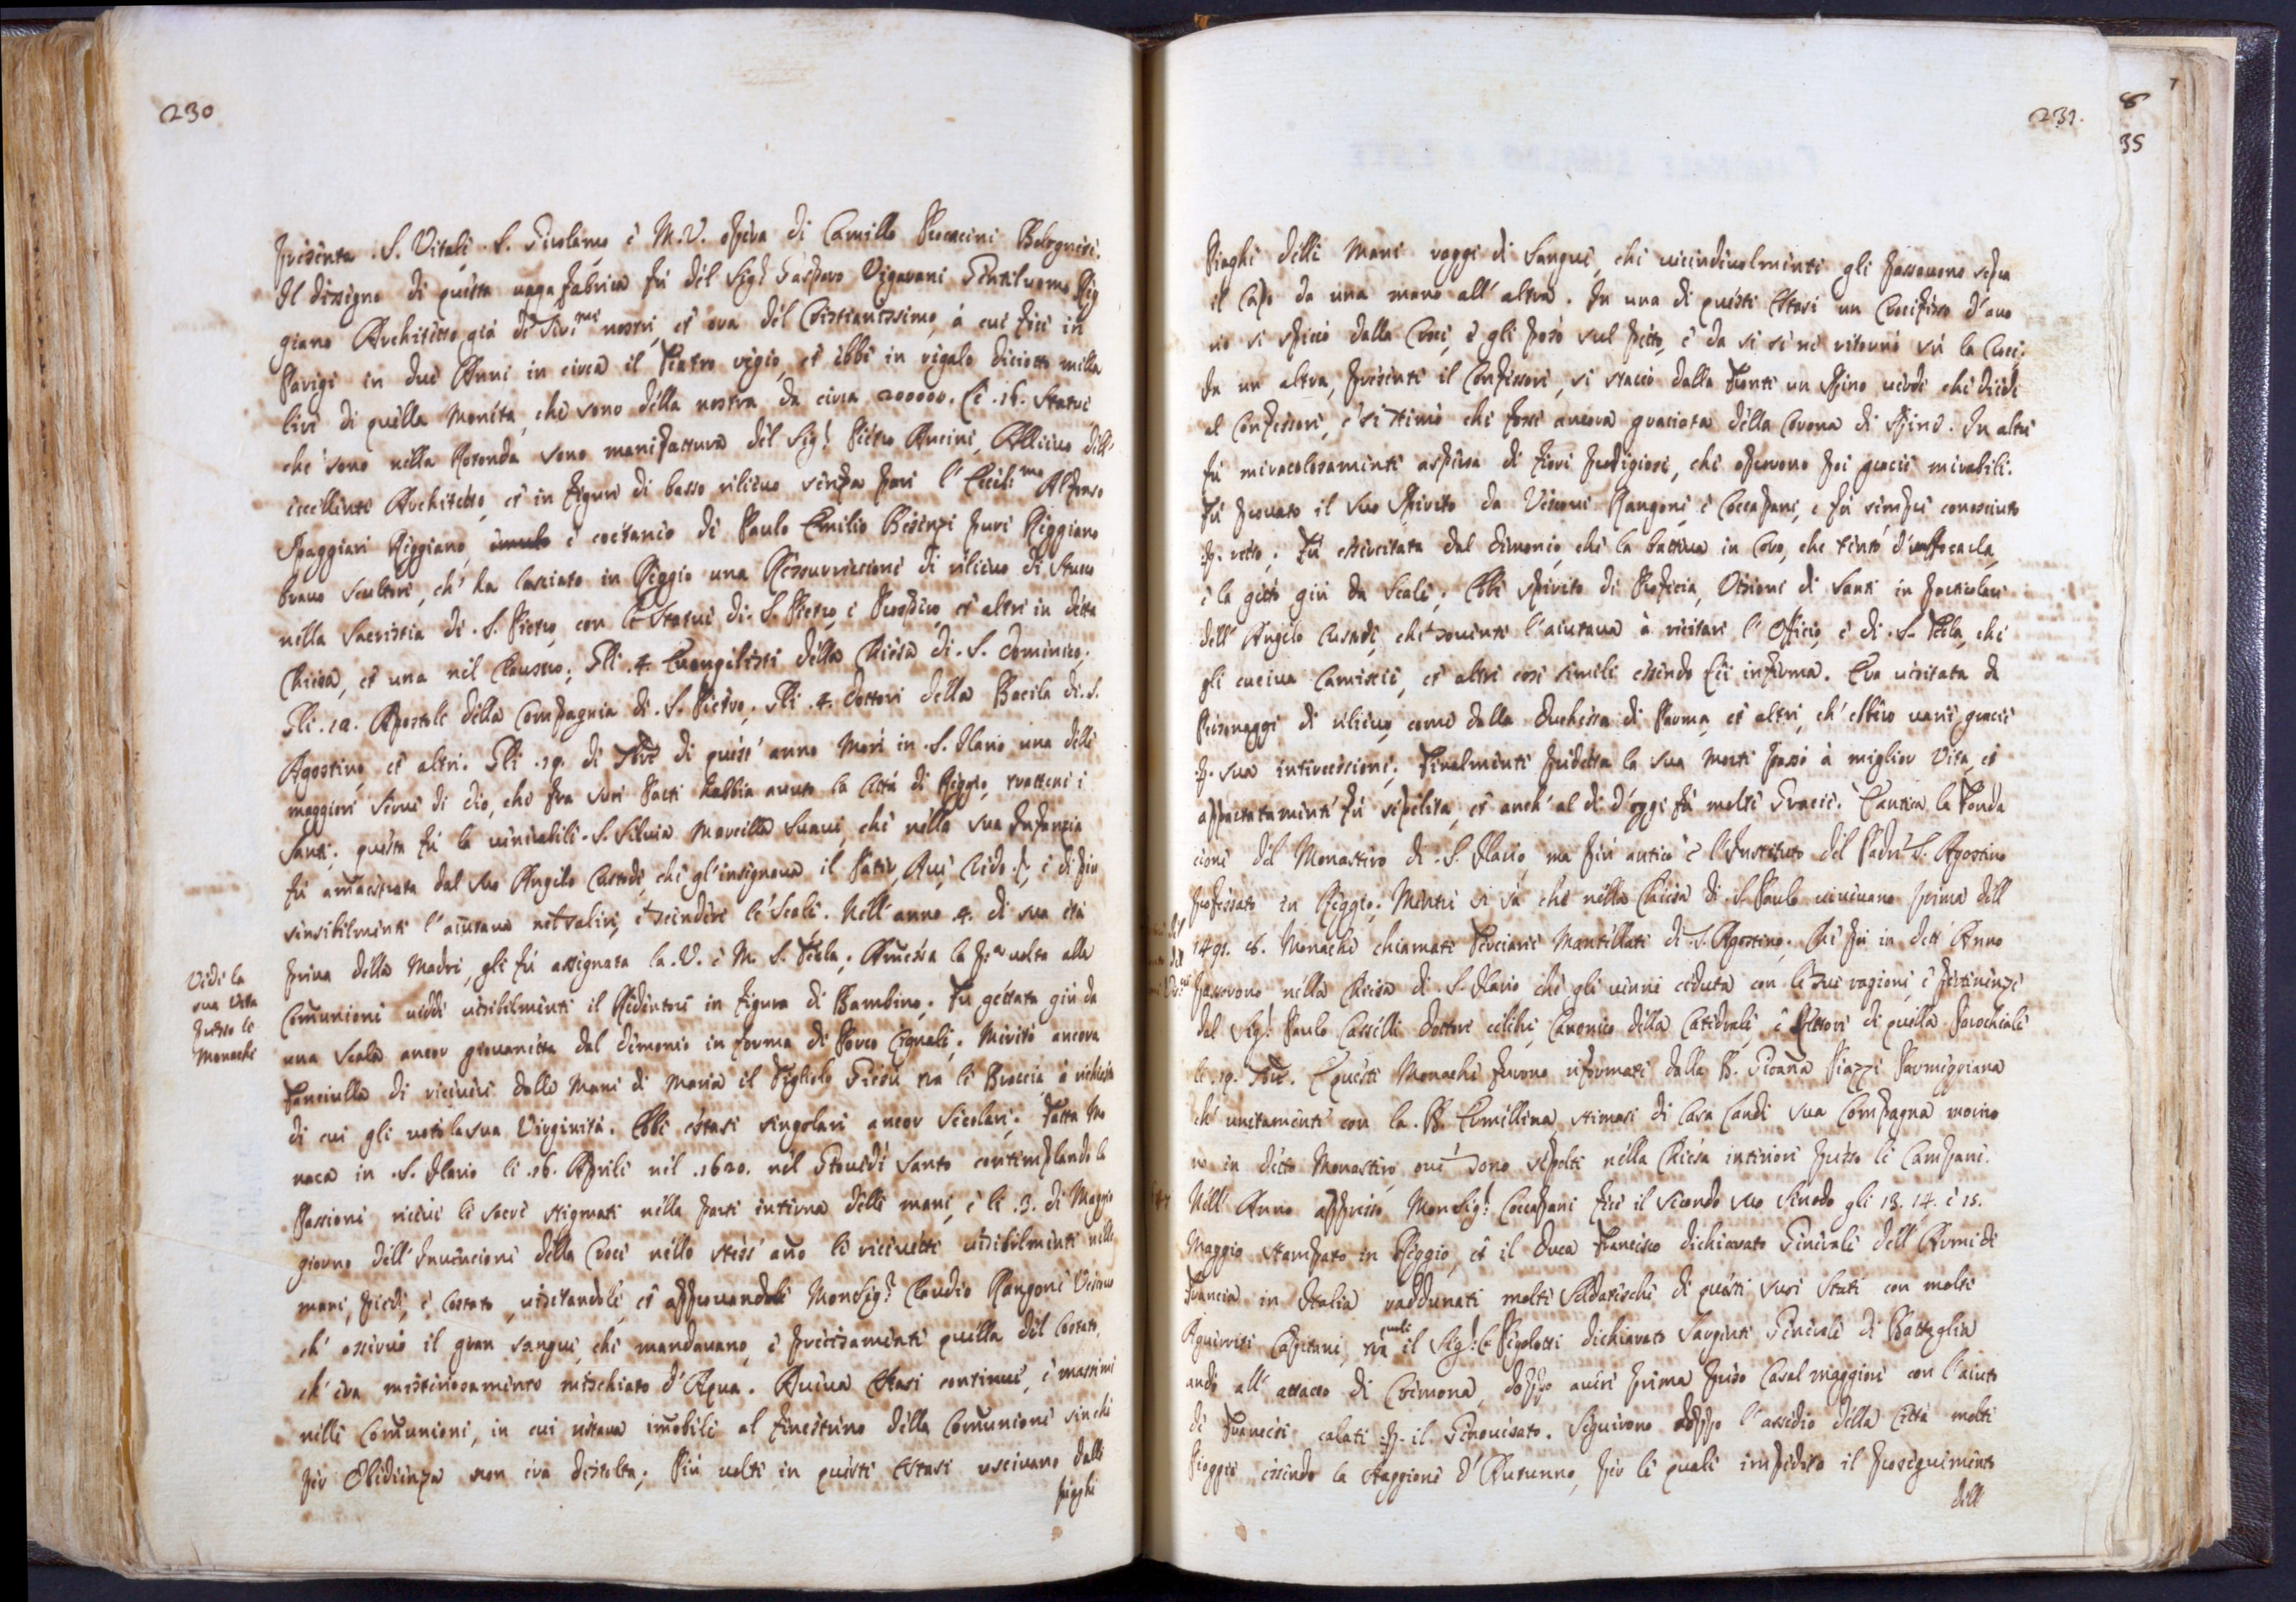 230
presenta S. Vitale S. Girolamo, è M.V. opera di Camillo Procacini Bolognese.
Il dissegno di questa vaga fabrica fù del Sig.r Gasparo Vigarani Gentiluomo Reg
giano Architetto già de Ser.mi nostri, et ora del Cristianissimo, à cui fece in
Parigi in due Anni in circa il Teatro regio, et ebbe in regalo diciotto milla
lire di quella moneta, che sono della nostra da circa 200000. Le .16. Statue
che sono nella Rotonda sono manifattura del Sig.r Pietro Ancini, Allievo dell'
eccellente Architetto, et in figure di basso rilievo senza pari l'Eccel.mo Alfonso
Spaggiari Reggiano, è coetaneo di Paulo Emilio Besenzi pure Reggiano
bravo scultore, ch' ha lasciato in Reggio una Ressurreccione di rilievo di Stucco
nella Sacristia di .S. Pietro, con le Statue di .S. Pietro, è Prospero, et altre in detta
Chiesa, et una nel Claustro; Gli .4. Evangelisti della Chiesa di .S. Domenico;
Gli .12. Apostoli della Compagnia di .S. Pietro, Gli .4. Dottori della Bacila di .S.
Agostino, et altri. Gli .19. di 9bre di quest' anno Morì in .S. Ilario una delle
maggiori serve di Dio, che fra suoi Parti habbia avuto la Città di Reggio, trattene i
Santi; questa fù la venerabile .S. Silvia Marcella Suavi, che nella sua Infanzia
fù amaestrata dal suo Angelo Custode, che gl'insegnava il Pater, Ave, Credo &, è di più
sensibilmente l'aiutava nel salire, è scendere le Scale. Nell'anno .4. di sua età
priva della Madre, gli fù assegnata la .V. è M. S. Tecla; Amessa la p.a volta alla
Comunione vidde visibilmente il Redentore in figura di Bambino. Fu gettata giù da
una Scala ancor giovanetta dal Demonio in forma di Porco Cignale; Meritò ancora
Fanciulla di ricevere dalle Mani di Maria il Figliolo Giesù tra le Braccia à richiesta
di cui gli votò la sua Virginità. Ebbe estasi singolari ancor secolare; Fatta Mo
naca in .S. Ilario li .16. Aprile nel .1620. nel Giovedì Santo contemplando la
Passione riceve le sacre stigmate nella parte interna delle mani, è li .3. di Maggio
giorno dell' Invencione della Croce nello stess' año le ricevette visibilmente nelle
mani, piedi, è Costato, visitandole, et approvandole MonSig.r Claudio Rangone Vescovo
ch' osservò il gran sangue, che mandavano, è precisamente quella del Costato,
ch' era misteriosamente mischiato d'Aqua. Aveva Estasi continue, è massime
nelle Comunioni, in cui restava imobile al finestrino della Comunione sin che
per Obidienza non era distolta; Più volte in queste Estasi uscivano dalle
pieghe
Vedi la
sua Vita
presso le
Monache
231.
Piaghe delle Mani raggi di Sangue, che vicindevolmente gli passavono sopra
il Capo da una mano all' altra. In una di queste Estasi un Crocifisso d'avo
rio si spiccò dalla Croce, è gli posò sul petto, è da se se ne ritornò sù la Croce;
In un altra, presente il Confessore, si staccò dalla Fronte un Spino verde che diede
al Confessore, è si stimò che fosse ancora graciata della Corona di Spine. In altre
fù miracolosamente aspersa di Fiori prodigiosi, che operavono poi gracie mirabili.
Fù provato il suo Spirito da Vescovi Rangone, è Coccapani, e fù sempre conosciuto
p. retto; Fù essercitata dal Demonio, che la batteva in Coro, che tentò d'affocarla,
è la gettò giù da Scale; Ebbe spirito di Proficia, Visioni di Santi in particolare
dell' Angelo Custode, che sovente l'aiutava à recitare l'Officio, è di .S. Tecla, che
gli cuciva Camiscie, et altre cose simili essendo Lei inferma. Era visitata da
Personaggi di rilievo, come dalla Duchessa di Parma, et altri, ch' ebbero varie gracie
p. sua intercessione; Finalmente predetta la sua Morte passò à miglior Vita, et
appartatamente fù sepelita, et anch' al dì d'oggi fà molte Gracie. È antica la Fonda
cione del Monastero di .S. Ilario, ma più antico è l'Instituto del Padre S. Agostino
professato in Reggio; Mentre si sà che nella Chiesa di .S. Paulo vivevano prima dell
1491. 8. Monache chiamate Terciarie Mantellate di .S. Agostino. Che poi in dett' Anno
passorono nella Chiesa di .S. Ilario che gli venne ceduta con le sue ragioni, è pertinenze
dal Sig.r Paulo Casselli Dottore celebre, Canonico della Catedrale, è Rettore di quella Parochiale
li .19. 9bre. E queste Monache furono riformate dalla B. Gioaña Piazzi Parmiggiana
ch' unitamente con la .B. Ermellina stimasi di Casa Candi sua Compagna moriro
no in detto Monastero, ove sono sepolte nella Chiesa interiore presso le Campane.
Nell' Anno appresso MonSig.r Coccapani fece il secondo suo Sinodo gli 13. 14. è 15.
Maggio stampato in Reggio, et il Duca Francesco dichiarato Generale dell' Armi di
Francia in Italia raddunate molte Soldatesche di questi suoi Stati con molti
Aguerriti Capitani, tra quali il Sig.r Co. Pegolotti dichiarato Sargente Generale di Battaglia
andò all' attacco di Cremona, doppo avere prima preso Casal maggiore con l'aiuto
de Francesi calati .p. il Genovesato. Seguirono doppo l'assedio della Città molte
Pioggie essendo la staggione d'Autunno, per le quali impedito il proseguimento
dell'
8
35
7